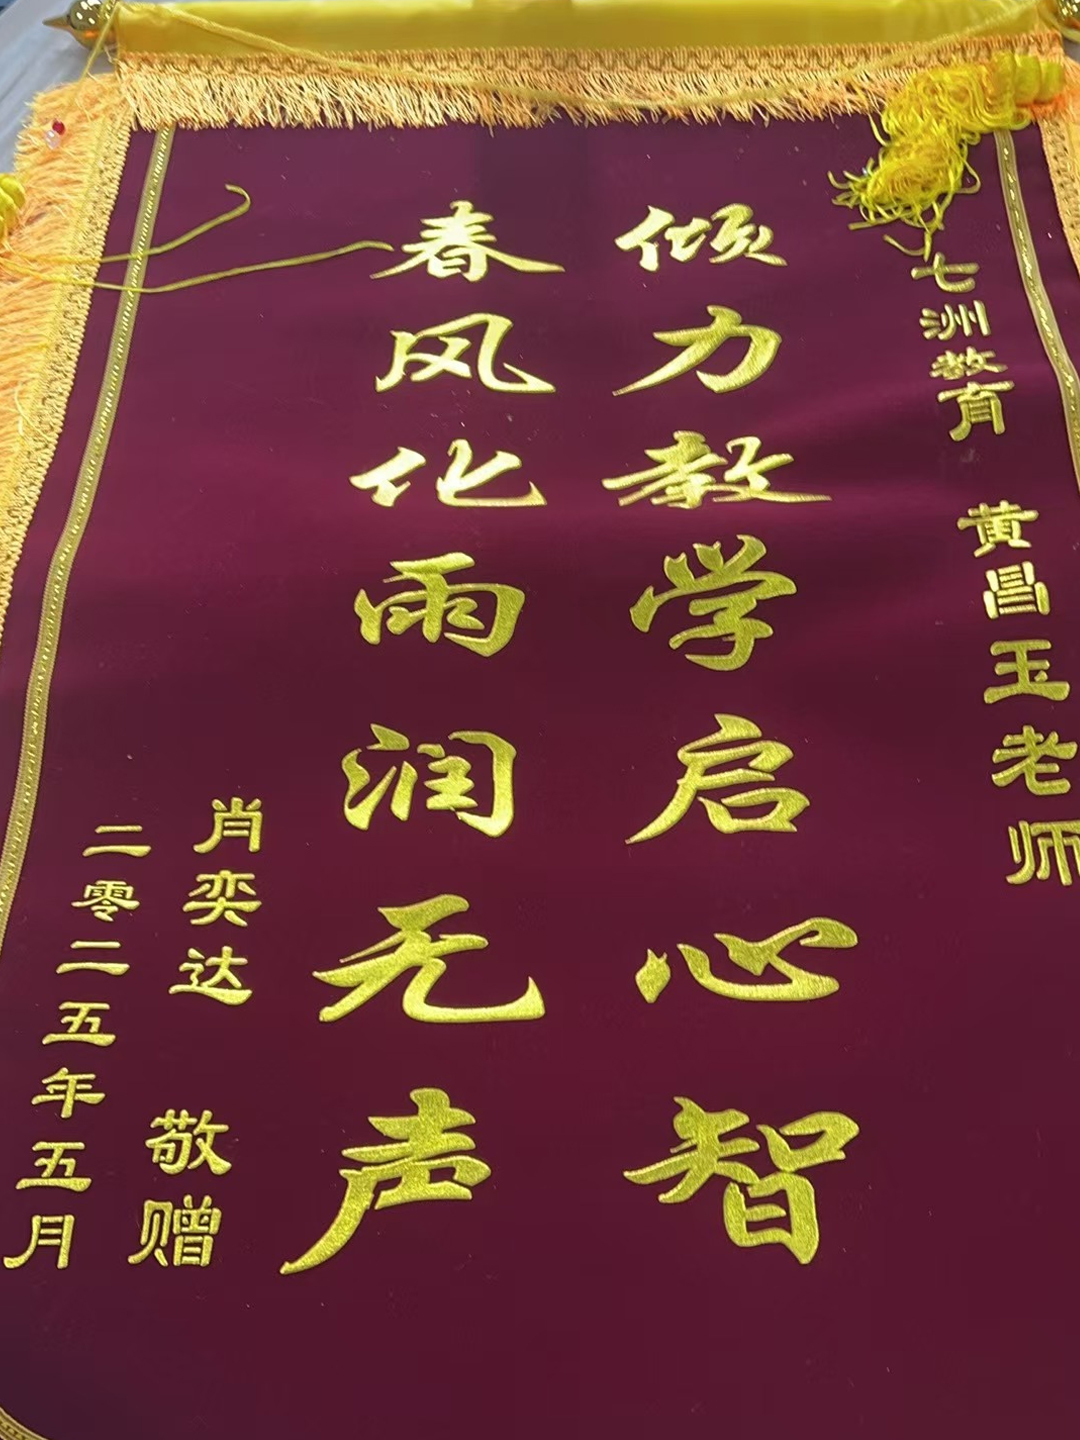 七洲教育 黄昌玉老师
倾力教学启心智
春风化雨润无声
肖奕达 敬赠
二零二五年五月